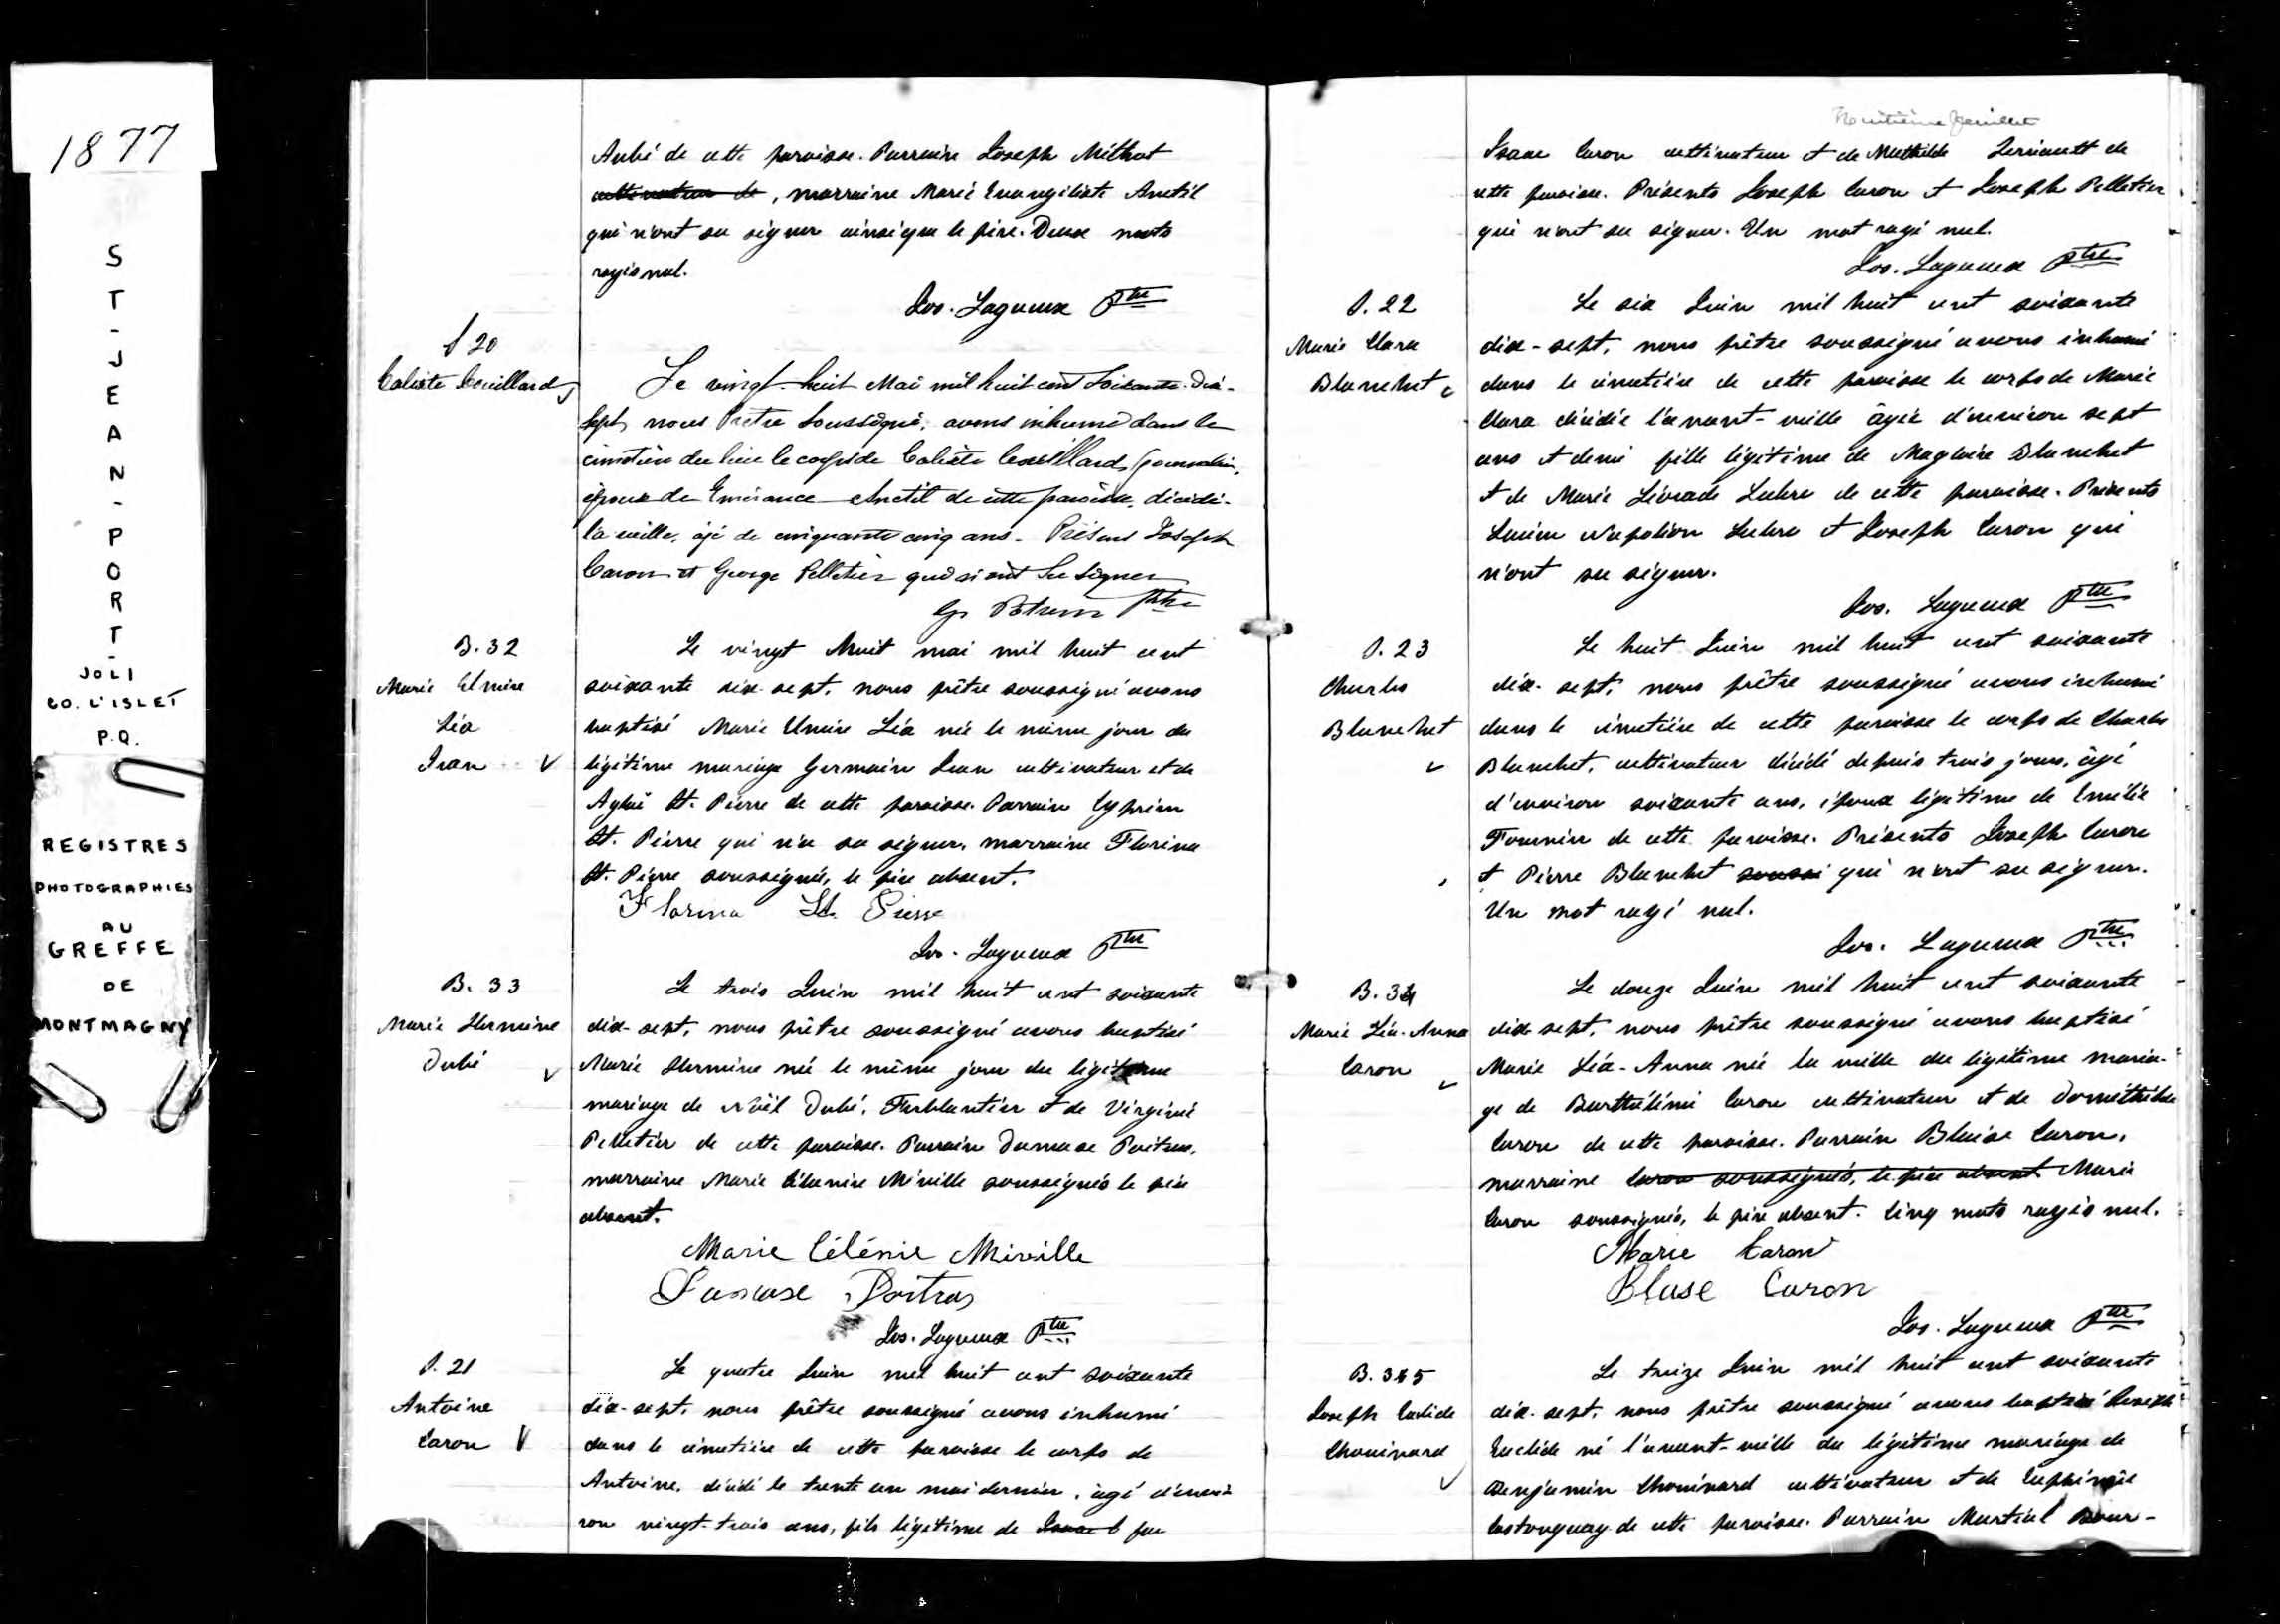 1877
ST-JEAN-PORT-
JOLI
CO. L'ISLET
P.Q.
REGISTRES
PHOTOGRAPHIES
AU
GREFFE
DE
MONTMAGNY
Aubé de cette paroisse. Parrain Joseph Méthot
cultivateur de, marraine Marie Evangéliste Anctil
qui n'ont su signer ainsi que le père. Deux mots
rayés nul.
Jos. Lagueux Ptre
S 20
Calixte Couillard
Le vingt-huit Mai mil huit cent soixante-dix-
sept, nous Prêtre soussigné, avons inhumé dans le
cimetière du lieu le corps de Calixte Couillard, journalier,
époux de Emérance Anctil de cette paroisse, décédé
la veille, âgé de cinquante cinq ans. Présens Joseph
Caron et George Pelletier qui n'ont su signer
Ptre
B. 32
Marie Elmire
Léa
Jean
Le vingt huit mai mil huit cent
soixante dix-sept, nous prêtre soussigné avons
baptisé Marie Elmire Léa née le même jour du
légitime mariage Germain Jean cultivateur et de
Aglaé St. Pierre de cette paroisse. Parrain Cyprien
St. Pierre qui n'a su signer, marraine Florina
St. Pierre soussignée, le père absent.
Florina St Pierre
Jos. Lagueux Ptre
B. 33
Marie Hermine
Dubé
Le trois Juin mil huit cent soixante
dix-sept, nous prêtre soussigné avons baptisé
Marie Hermine née le même jour du légitime
mariage de Noël Dubé, Ferblantier et de Virginie
Pelletier de cette paroisse. Parrain Damase Poitras,
marraine Marie Célanire Miville soussignés le père
absent.
Marie Célénie Miville
Damase Poitras
Jos. Lagueux Ptre
S. 21
Antoine
Caron
Le quatre Juin mil huit cent soixante
dix-sept, nous prêtre soussigné avons inhumé
dans le cimetière de cette paroisse le corps de
Antoine, décédé le trente un mai dernier, âgé d'envi-
ron vingt-trois ans, fils légitime de Isaac C feu
Huitième feuillet
Isaac Caron cultivateur et de Mathilde Terriault de
cette paroisse. Présents Joseph Caron et Joseph Pelletier
qui n'ont su signer. Un mot rayé nul.
Jos. Lagueux Ptre
S. 22
Marie Clara
Blanchet
Le six Juin mil huit cent soixante
dix-sept, nous prêtre soussigné avons inhumé
dans le cimetière de cette paroisse le corps de Marie
Clara décédée l'avant-veille âgée d'environ sept
ans et demi fille légitime de Magloire Blanchet
et de Marie Léocade Leclerc de cette paroisse. Présents
Lucien Napoléon Leclerc et Joseph Caron qui
n'ont su signer.
Jos. Lagueux Ptre
S. 23
Charles
Blanchet
Le huit Juin mil huit cent soixante
dix-sept, nous prêtre soussigné avons inhumé
dans le cimetière de cette paroisse le corps de Charles
Blanchet, cultivateur décédé depuis trois jours, âgé
d'environ soixante ans, époux légitime de Emélie
Fournier de cette paroisse. Présents Joseph Caron
et Pierre Blanchet soussi qui n'ont su signer.
Un mot rayé nul.
Jos. Lagueux Ptre
B. 34
Marie Léa-Anna
Caron
Le douze Juin mil huit cent soixante
dix-sept, nous prêtre soussigné avons baptisé
Marie Léa-Anna née la veille du légitime maria-
ge de Barthélémi Caron cultivateur et de Domithilde
Caron de cette paroisse. Parrain Blaise Caron,
marraine Caron soussignés, le père absent Marie
Caron soussignés, le père absent. Cinq mots rayés nul.
Marie Caron
Blase Caron
Jos. Lagueux Ptre
B. 35
Joseph Euclide
Chouinard
Le treize Juin mil huit cent soixante
dix-sept, nous prêtre soussigné avons baptisé Joseph
Euclide né l'avant-veille du légitime mariage de
Benjamin Chouinard cultivateur et de Euphémie
Castonguay de cette paroisse. Parrain Martial Bour-